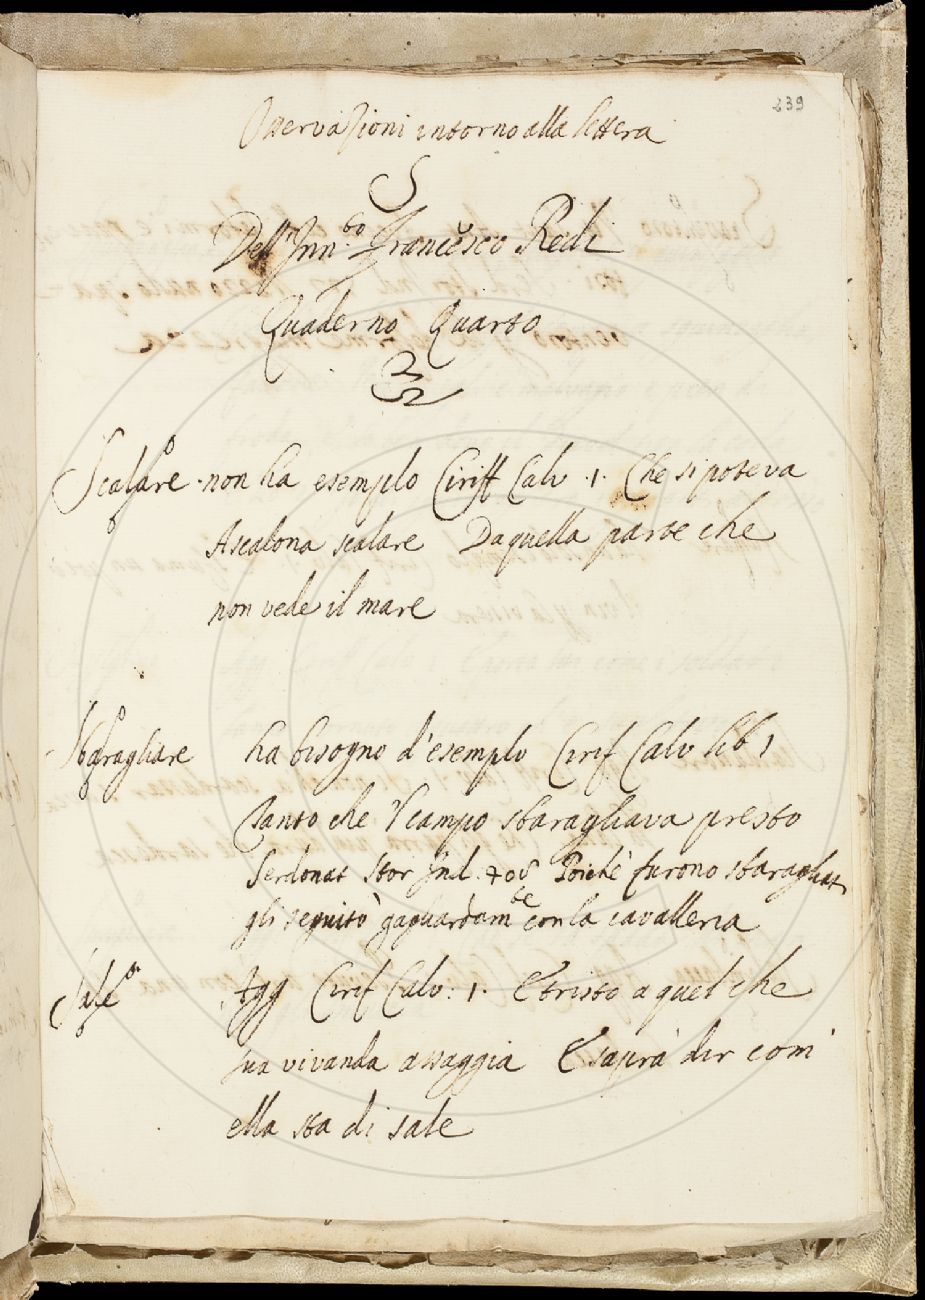 239
Osservazioni intorno alla lettera
S
Dell'Inn.to Francesco Redi
Quaderno Quarto
Scalare · non ha esempio Ciriff Calv · 1 · Che si poteva
Ascalona scalare Da quella parte che
non vede il mare
Sbaragliare ha bisogno d'esempio Cirif Calv lib 1
Tanto che 'l campo sbaragliava presto
Serdonat Stor Ind. 408 Poichè furono sbaragliat
gli seguitò gagliardam.te con la cavalleria
Sale Agg Cirif Calv: 1. E tristo a quel che
sua vivanda assaggia E saprà dir com'
ella sta di sale